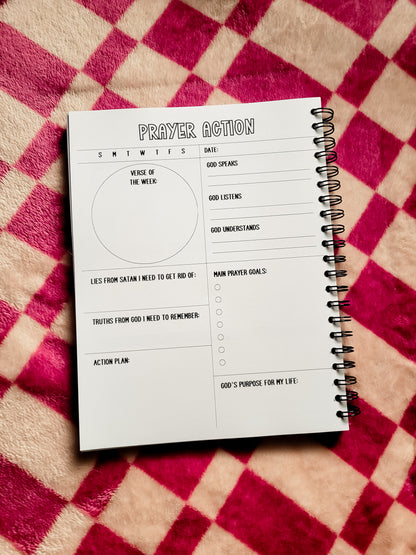 PRAYER ACTION
S M T W T F S
DATE:
VERSE OF
THE WEEK:
GOD SPEAKS
GOD LISTENS
GOD UNDERSTANDS
LIES FROM SATAN I NEED TO GET RID OF:
TRUTHS FROM GOD I NEED TO REMEMBER:
ACTION PLAN:
MAIN PRAYER GOALS:
GOD'S PURPOSE FOR MY LIFE: